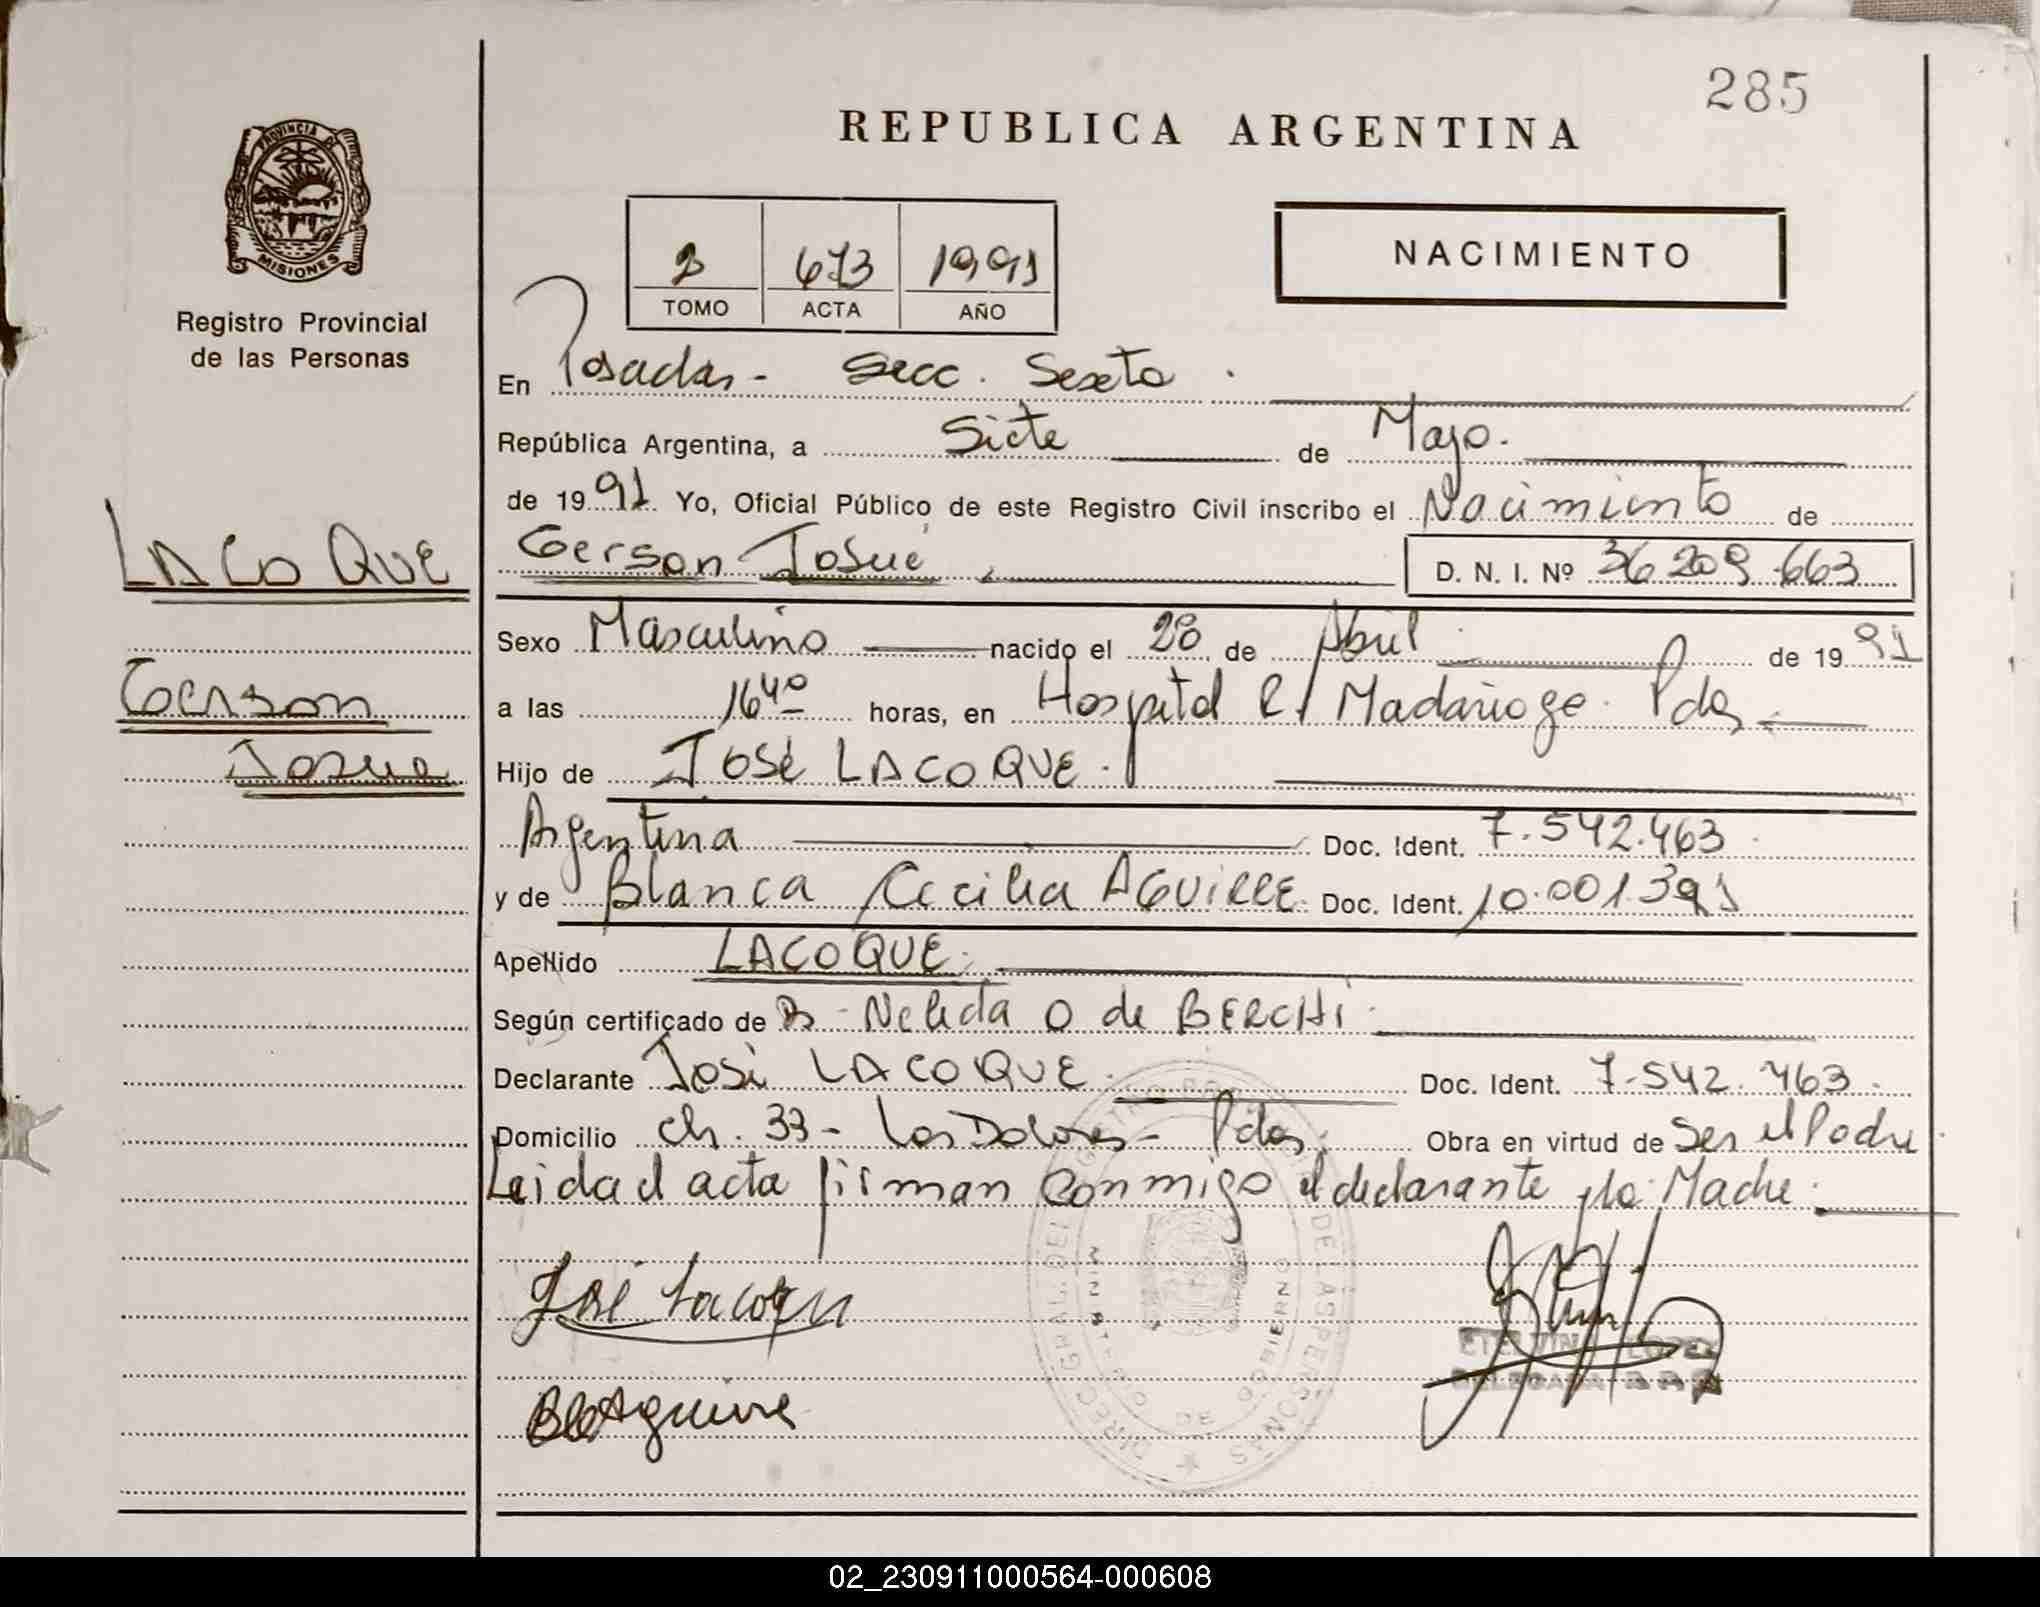 285
REPUBLICA ARGENTINA
PROVINCIA DE
MISIONES
Registro Provincial
de las Personas
2 673 1991
TOMO ACTA AÑO
NACIMIENTO
En Posadas - Secc. Sexta.
República Argentina, a Siete de Mayo.
de 1991 Yo, Oficial Público de este Registro Civil inscribo el Nacimiento de
LACOQUE
Gerson Josué D. N. I. Nº 36.209.663
Sexo Masculino nacido el 28 de Abril de 1991
Gerson
a las 16 40 horas, en Hospital R. Madariaga. Pdas.
Josue
Hijo de José LACOQUE.
Argentina Doc. Ident. 7.542.463
y de Blanca Cecilia AGUIRRE Doc. Ident. 10.001.391
Apellido LACOQUE.
Según certificado de Nelida O de BERCHI
Declarante José LACOQUE. Doc. Ident. 7.542.463.
Domicilio Ch. 33 - Los Dolores - Pdas. Obra en virtud de Ser el Padre
Leida el acta firman conmigo el declarante y la Madre.
DIREC. GRAL. DEL REGISTRO DE LAS PERSONAS
MINISTERIO DE GOBIERNO
José Lacoque
LOPEZ
DELEGADA
BCAguirre
02_230911000564-000608